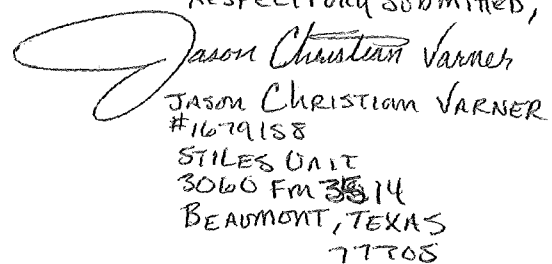 RESPECTFULLY SUBMITTED,
Jason Christian Varner
JASON CHRISTIAN VARNER
#1679158
STILES UNIT
3060 FM 3514
BEAUMONT, TEXAS
77705